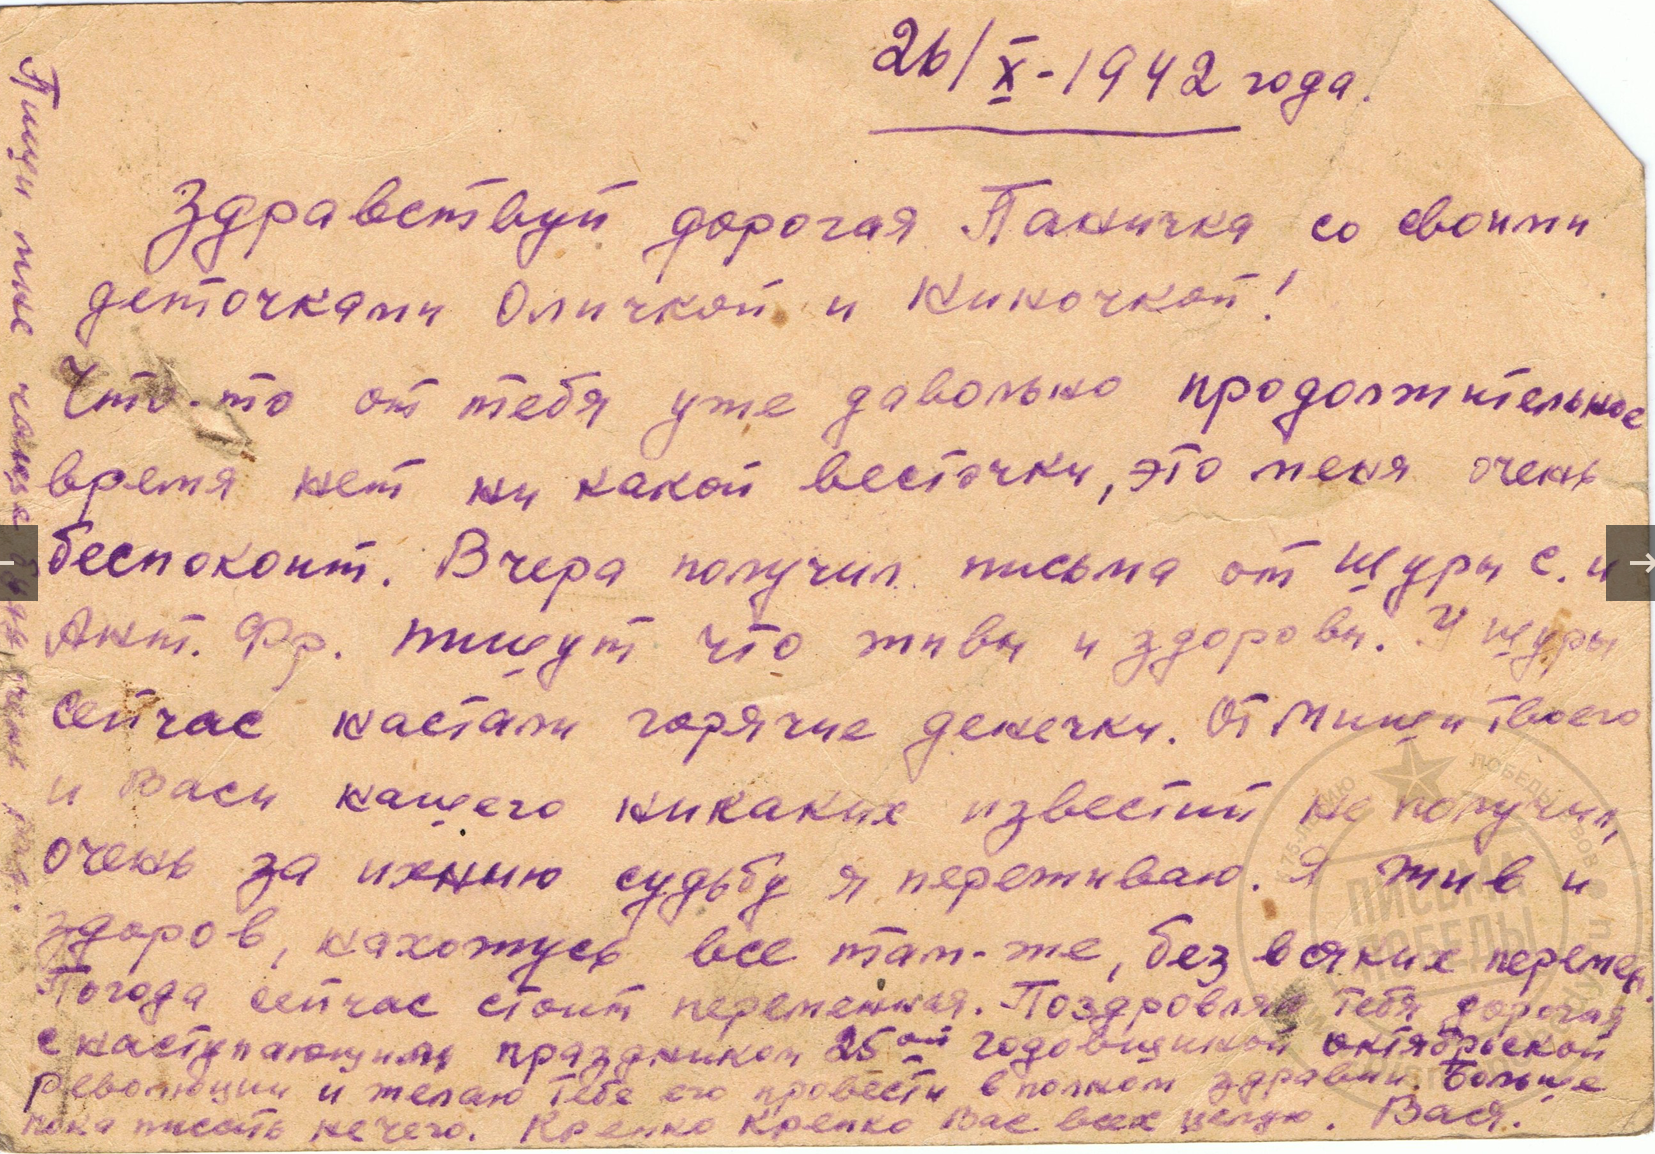 26/X-1942 года.
Здравствуй дорогая Паничка со своими
деточками Оличкой и Ниночкой!
Что-то от тебя уже давольно продолжительное
время нет ни какой весточки, это меня очень
беспокоит. Вчера получил письма от Шуры С. и
Ант. Фр. пишут что живы и здоровы. У Шуры
сейчас настали горячие денечки. От Миши твоего
и Васи нашего никаких известий не получил,
очень за ихнию судьбу я переживаю. Я жив и
здоров, нахожусь все там-же, без всяких перемен.
Погода сейчас стоит переменная. Поздровляю тебя дорогая
с наступающим праздником 25ой годовщиной октябрьской
революции и желаю тебе его провести в полном здравии. Больше
пока писать нечего. Крепко крепко Вас всех целую. Вася.
Пиши мне чаще
ПИСЬМА
ПОБЕДЫ